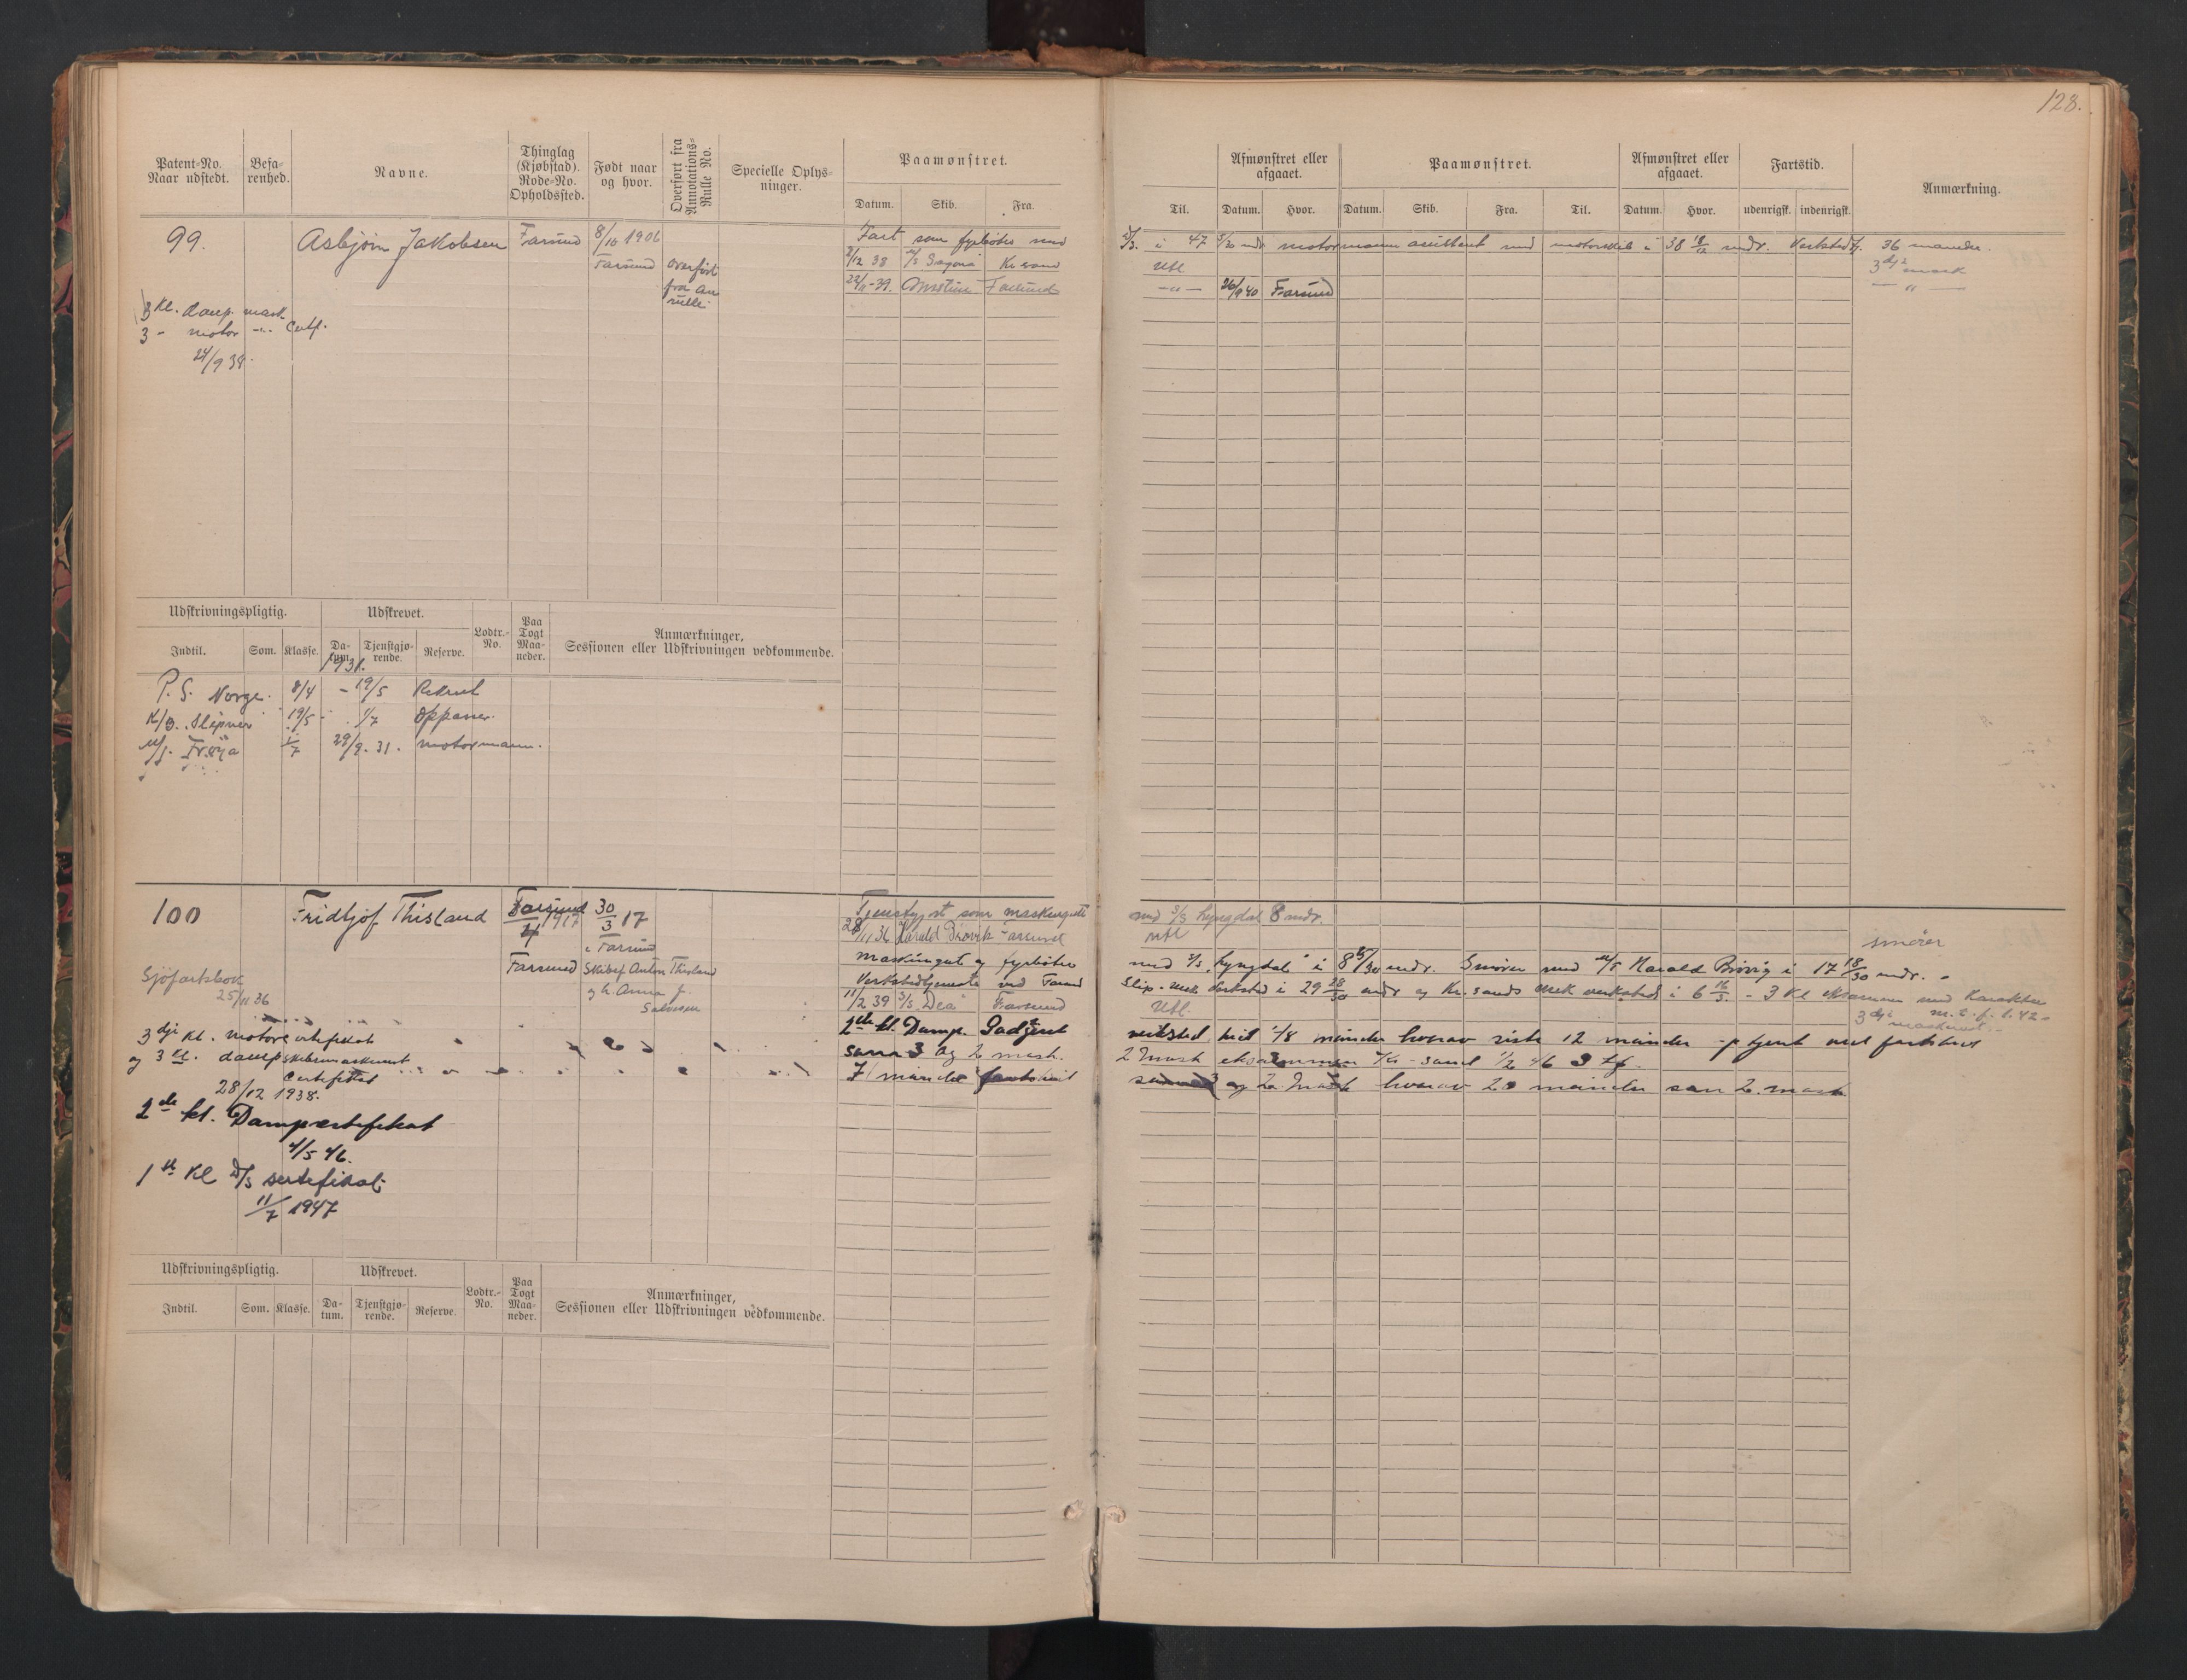 128.
Patent-No. Naar udstedt.
Befarenhed.
Navne.
Thinglag (Kjøbstad). Rode-No. Opholdssted.
Født naar og hvor.
Overført fra Annotations-Rulle No.
Specielle Oplysninger.
Paamønstret.
Datum. Skib. Fra. Til.
Afmønstret eller afgaaet.
Datum. Hvor.
Paamønstret.
Datum. Skib. Fra. Til.
Afmønstret eller afgaaet.
Datum. Hvor.
Fartstid.
udenrigsk. indenrigsk.
Anmærkning.
99. Asbjørn Jakobsen Farsund 8/10 1906
Farsund
overført fra An rulle
3 Kl. damp. mask.
3 - motor -"- Certf.
24/9 38.
Fart som fyrbøter med
D/S. i 47 5/30 mdr motormann assistent med motorskib i 38 18/12 mdr. Verkstedtj. 36 maaneder.
/12 38 Kr sand Utl 3dje mask
22/11-39. Farsund -"- 26/9 40 Farsund -"-
Udskrivningspligtig.
Udskrevet.
Indtil. Som. Klasse. Datum. Tjenstgjørende. Reserve.
Lodtr.-No.
Paa Togt Maaneder.
Anmærkninger, Sessionen eller Udskrivningen vedkommende.
1931.
P. S. Norge. 8/4 - 19/5 Rekrut
K/B. Sleipner 19/5 - 1/7 Oppasser
M/S. Frøya 1/7 29/9. 31. motormann.
100 Fridtjof Thisland Farsund 30/3 17
4 1917
Farsund
i Farsund
Skibsf. Anton Thisland
og h. Anna f.
Salvesen
Sjøfartsbok
25/11 36
3dje Kl. motorcertifikat
og 3 Kl. dampskibsmaskinist
Certifikat
28/12 1938.
2de kl. Dampcertifikat
4/5 46.
1ste Kl D/S sertefikat
11/7 1947
Tjenstgjort som maskingutt med S/S Lyngdal 8 mdr.
28/11 36 Harald Brøvik Farsund utl smører
maskingut og fyrbøter med D/S "Lyngdal" i 8 /30 mdr. Smører med M/S Harald Brøvig i 17 18/30 mdr. -
Verkstedtjeneste ved Farsund Slip & Mek Verksted i 29 28/30 mdr og Kr.sands Mek verksted i 6 mdr. - 3 Kl eksamen med Karakter
11/2 39 S/S Dea Farsund Utl. 3dje maskinist.
2de kl. Damp.
verksted
12 måneder
som 3 og 2 mask. 2 Mask eksammen Kr-sand 1/2 46
måneder
og 2. Mask hvorav 20 måneder som 2. mask
Udskrivningspligtig.
Udskrevet.
Indtil. Som. Klasse. Datum. Tjenstgjørende. Reserve.
Lodtr.-No.
Paa Togt Maaneder.
Anmærkninger, Sessionen eller Udskrivningen vedkommende.